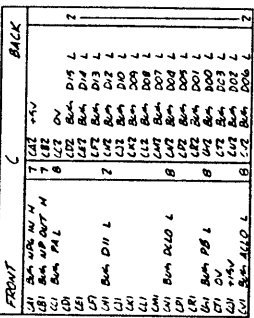 FRONT C BACK
CA1 BUS NPG IN H 7 CA2 +5V
CB1 BUS NP OUT H 7 CB2
CC1 BUS PA L 8 CC2 0V
CD1 CD2 BUS D15 L 2
CE1 CE2 BUS D14 L
CF1 CF2 BUS D13 L
CH1 BUS D11 L 2 CH2 BUS D12 L
CJ1 CJ2 BUS D10 L
CK1 CK2 BUS D09 L
CL1 CL2 BUS D08 L
CM1 CM2 BUS D07 L
CN1 BUS DCLO L 8 CN2 BUS D04 L
CP1 CP2 BUS D05 L
CR1 CR2 BUS D01 L
CS1 BUS PB L 8 CS2 BUS D00 L
CT1 0V CT2 BUS D03 L
CU1 +15V CU2 BUS D02 L
CV1 BUS ACLO L 8 CV2 BUS D06 L 2